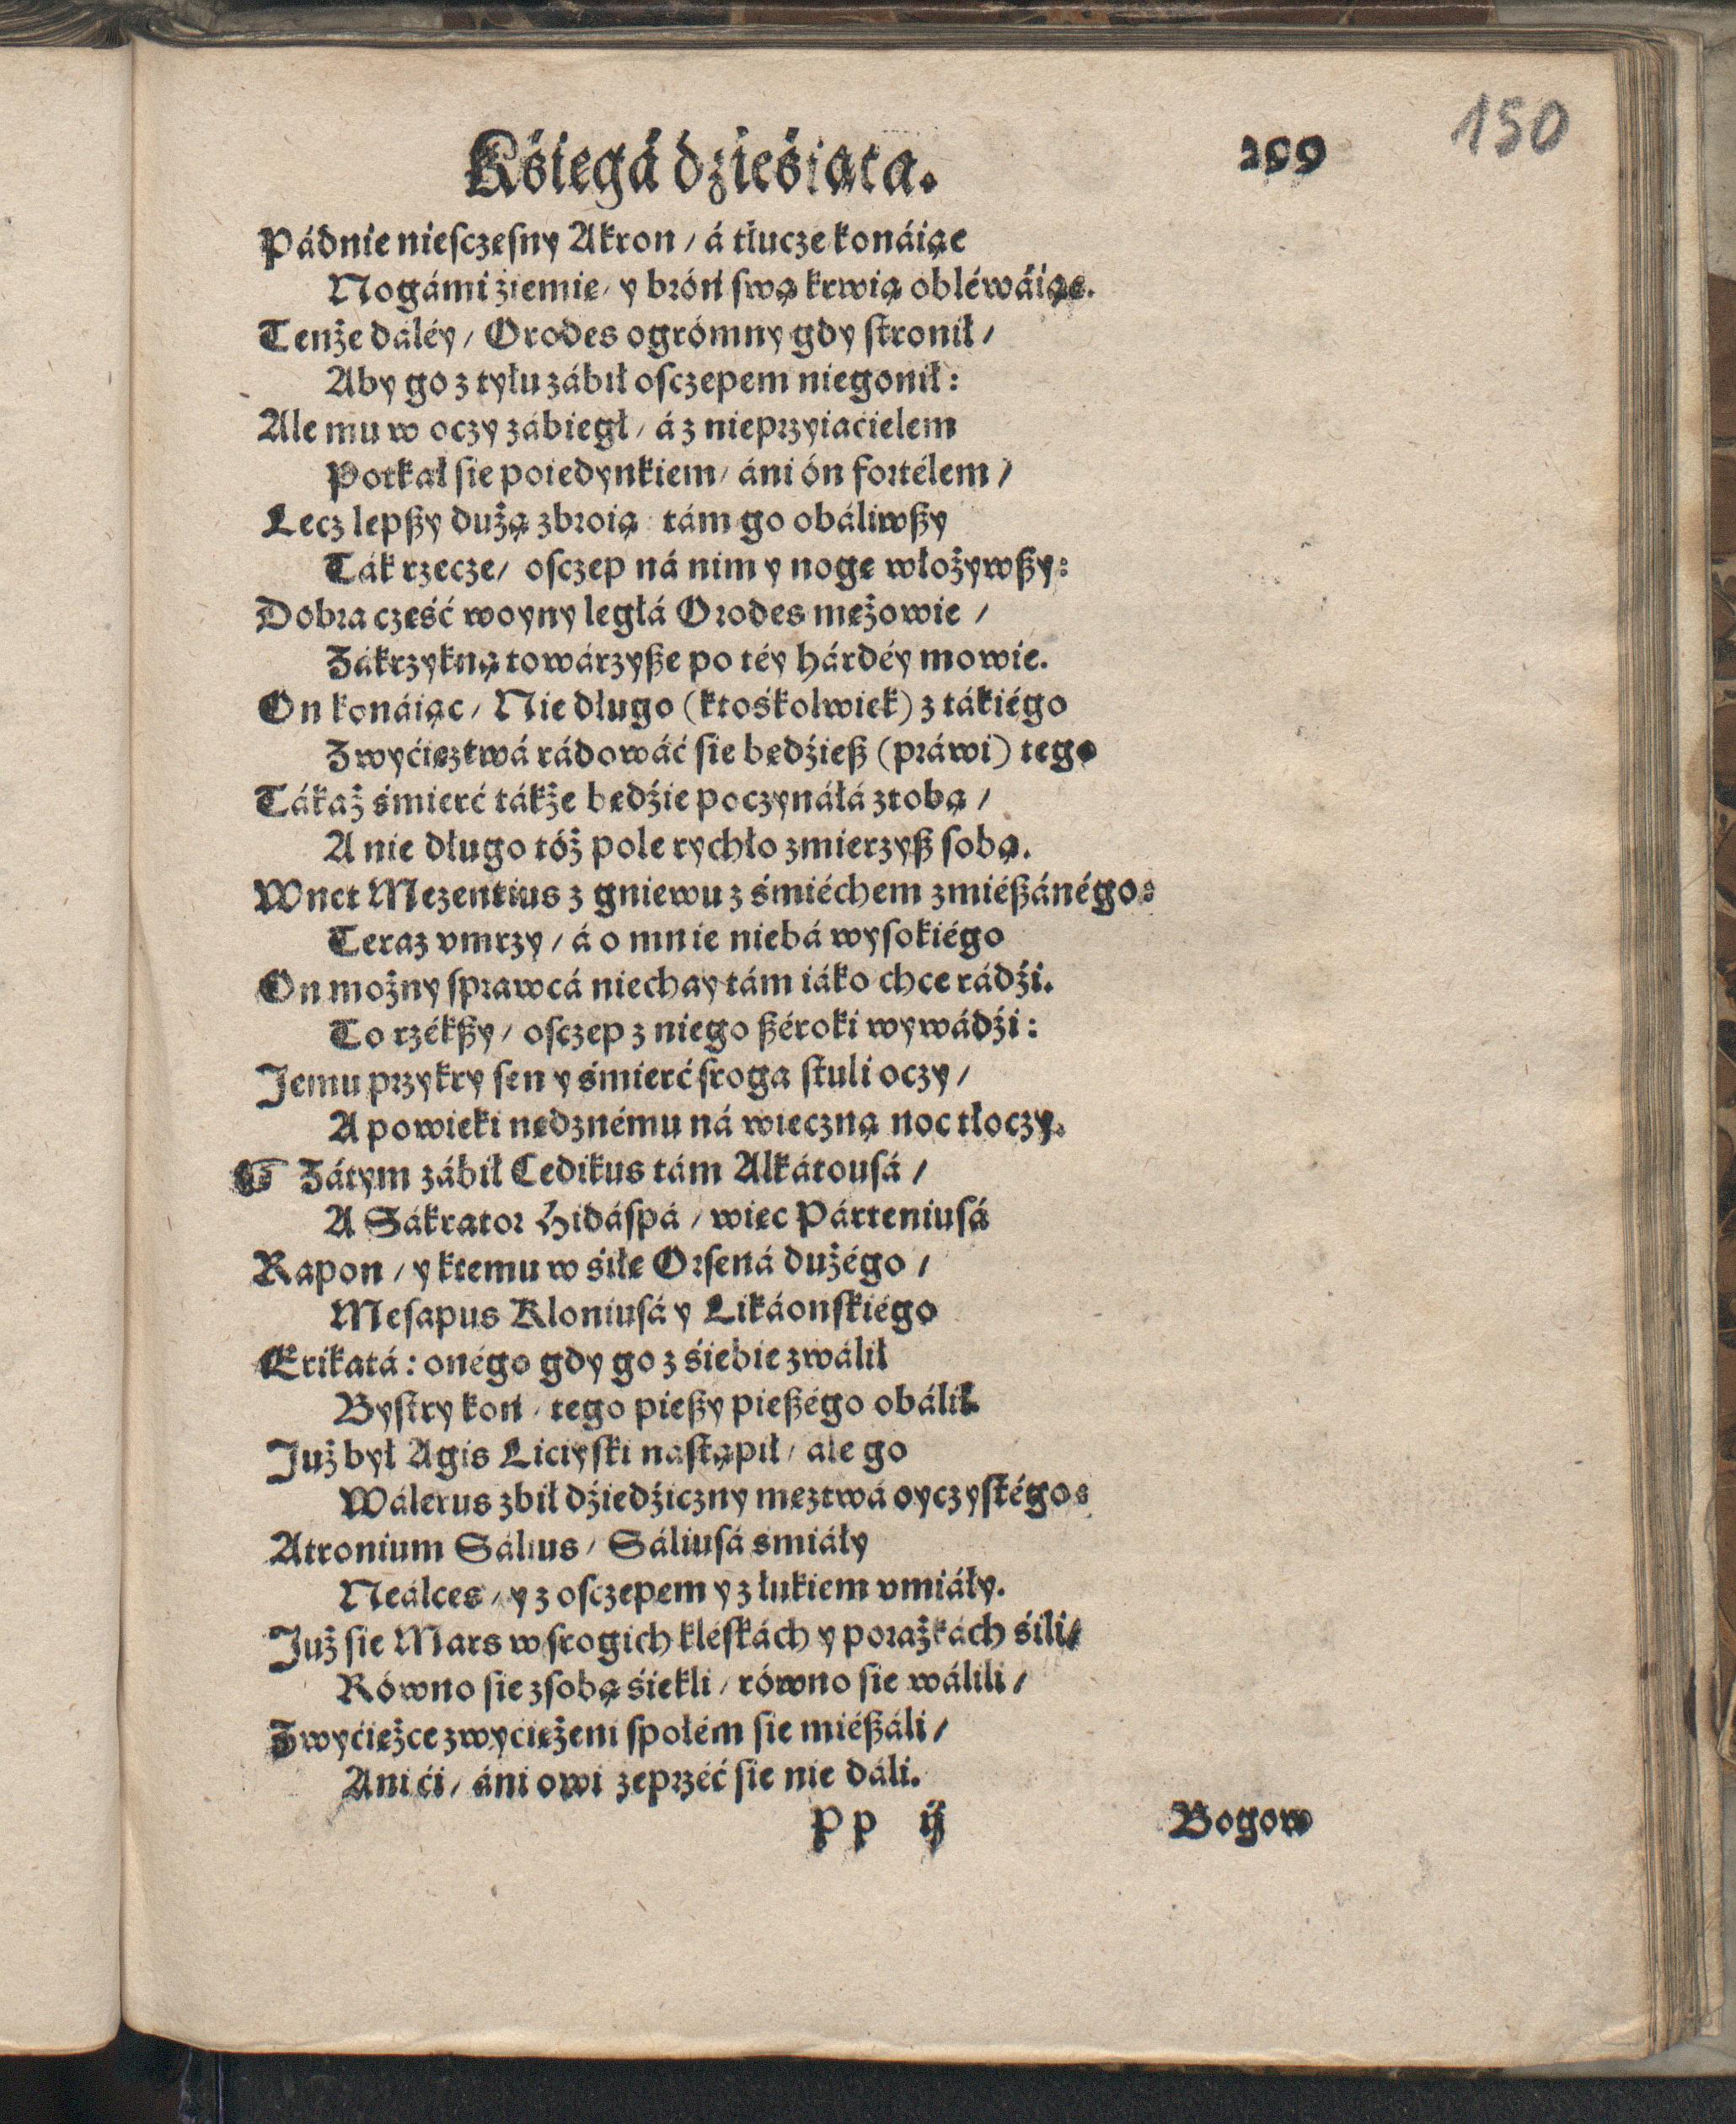 150
Kśięgá dźieśiąta. 299
Pádnie niesczesny Akron / á tłucze konáiąc
Nogámi źiemię / y bróń swą krwią obléwáiąc.
Tenże dáléy / Orodes ogrómny gdy stronił /
Aby go z tyłu zábił osczepem niegonił:
Ale mu w oczy zábiegł / á z nieprzyiaćielem
Potkał sie poiedynkiem / áni ón fortélem /
Lecz lepßy dużą zbroią tám go obáliwßy
Ták rzecze / osczep ná nim y nogę włożywßy:
Dobra część woyny ległá Orodes mężowie /
Zákrzykną towárzyße po téy hárdéy mowie.
On konáiąc / Nie długo (ktośkolwiek) z tákiégo
Zwyćięztwá rádowáć sie będźieß (práwi) tego
Tákaż śmierć tákże będźie poczynáłá z tobą /
A nie długo tóż pole rychło zmierzyß sobą.
Wnet Mezentius z gniewu z śmiéchem zmiéßánégo:
Teraz vmrzy / á o mnie niebá wysokiégo
On możny sprawcá niechay tám iáko chce rádźi.
To rzékßy / osczep z niego ßéroki wywádźi:
Jemu przykry sen y śmierć sroga stuli oczy /
A powieki nędznému ná wieczną noc tłoczy.
☞ Zátym zábił Cedikus tám Alkátousá /
A Sákrator Hidáspá / więc Párteniusá
Rapon / y ktemu w śiłę Orsená dużégo /
Mesapus Kloniusá y Likáonskiégo
Erikatá: onégo gdy go z śiebie zwálił
Bystry koń / tego pießy pießégo obálił.
Już był Agis Liciyski nastąpił / ale go
Wálerus zbił dźiedźiczny męztwá oyczystégo:
Atronium Sálius / Sáliusá śmiáły
Neálces / y z osczepem y z łukiem vmiáły.
Już sie Mars w srogich klęskách y porażkách śili /
Równo sie z sobą śiekli / równo sie wálili /
Zwyćiężce zwyćiężeni społém sie miéßáli /
Ani ći / áni owi zeprzéć sie nie dáli.
Pp ij Bogow